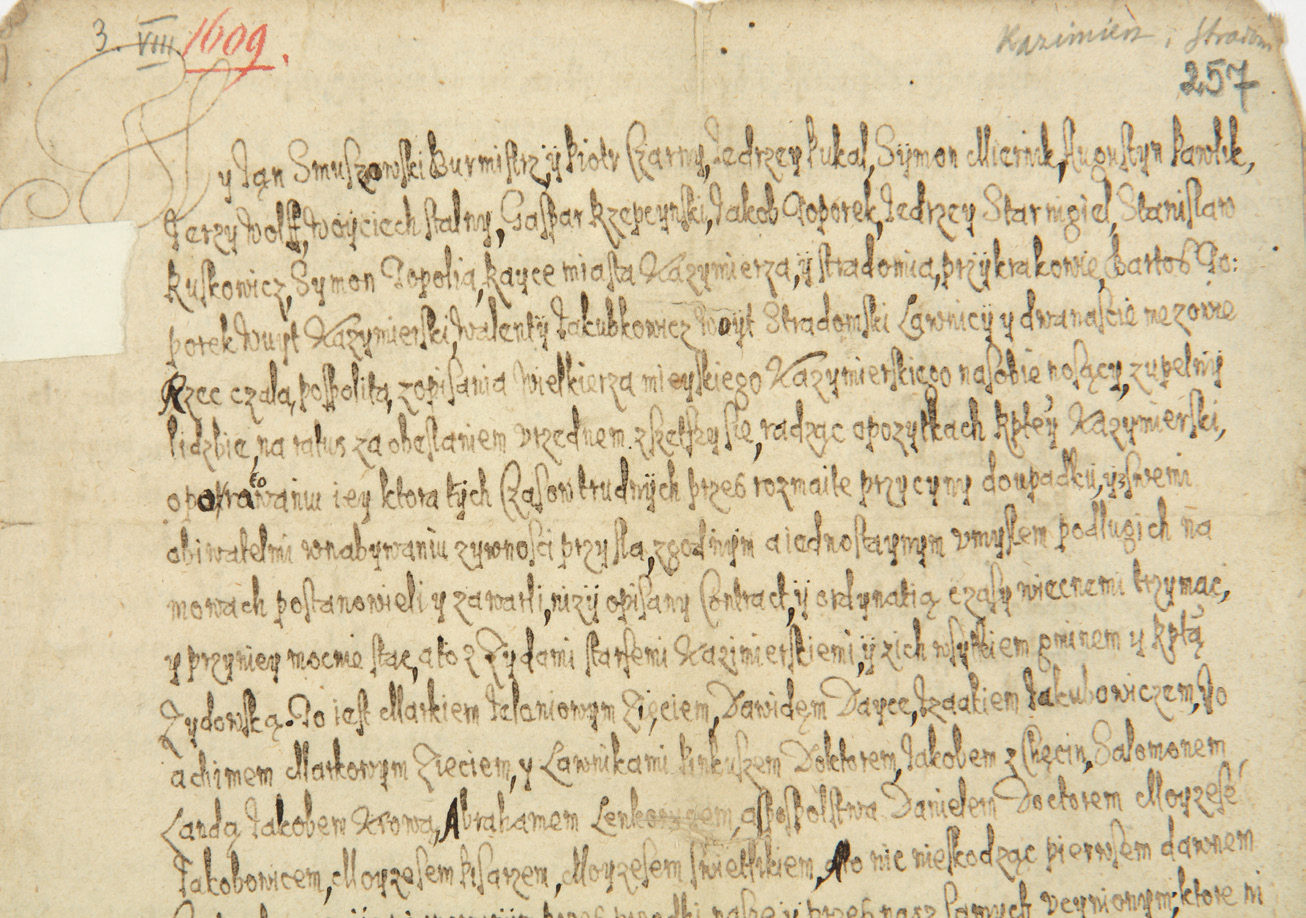 3. VIII 1609.
Kazimierz i Stradom
257
y Ian Smuszowski Burmistrz, ÿ Piotr Czarny, Iedrzey Pukal, Sÿmon Miernik, Augustyn Pawlik,
Ierzy Wolff, Woyciech stalny, Gaspar Rzepcynski, Iakob Toporek, Iedrzey Starnigiel, Stanislaw
Kuskowicz, Symon Topolia, Rayce miasta Kazymierza, ÿ stradomia, przÿ krakowie, Bartos To:
porek Wuyt Kazymierski, Walentÿ Iakubkowicz Woyt Stradomski Lawnicÿ y dwanascie mezowie
Rzec czala, pospolita, z opisania Wielkierza mieyskiego Kazymierskiego na sobie nosący, zupelnÿ
lidzbie, na ratus za obeslaniem vrzednem, radząc o pozytkach Rptey Kazymierski,
o poratowaniu iey ktora tÿch Czasow trudnÿch przes rozmaite przycyny do upadku, y z swemi
obiwatelmi w nabywaniu zywnosci przysla, zgodnÿm a iednostaynym vmyslem po dlugich na
mowach postanowieli y zawarli, nizÿ opisany Contract, y ordynatią czasy wiecnemi trzymac,
y przy niey mocnie stac, a to z Zydami starsemi Kazimierskiemi, ÿ z ich wsytkiem gminem y Rptą
Zydowską. To iest Markiem Ialoniowym Zięciem, Dawidęm Dayce, Izaakiem Iakubowiczem, Io
achimem Markowym Zieciem, y Lawnikami Pinkusem Doktorem, Iakobem z Chęcin, Salomonem
Landą Iakobem Krową, Abrahamem a s pospolstwa Danielem Doctorem Moyzese
Iakobowicem, Moyzesem Pisarzem, Moyzesem Swietlikiem, A to nic nieskodząc pierwsem dawnem
przes przodki nasze y przes nasz samych vcynionym, ktore ni